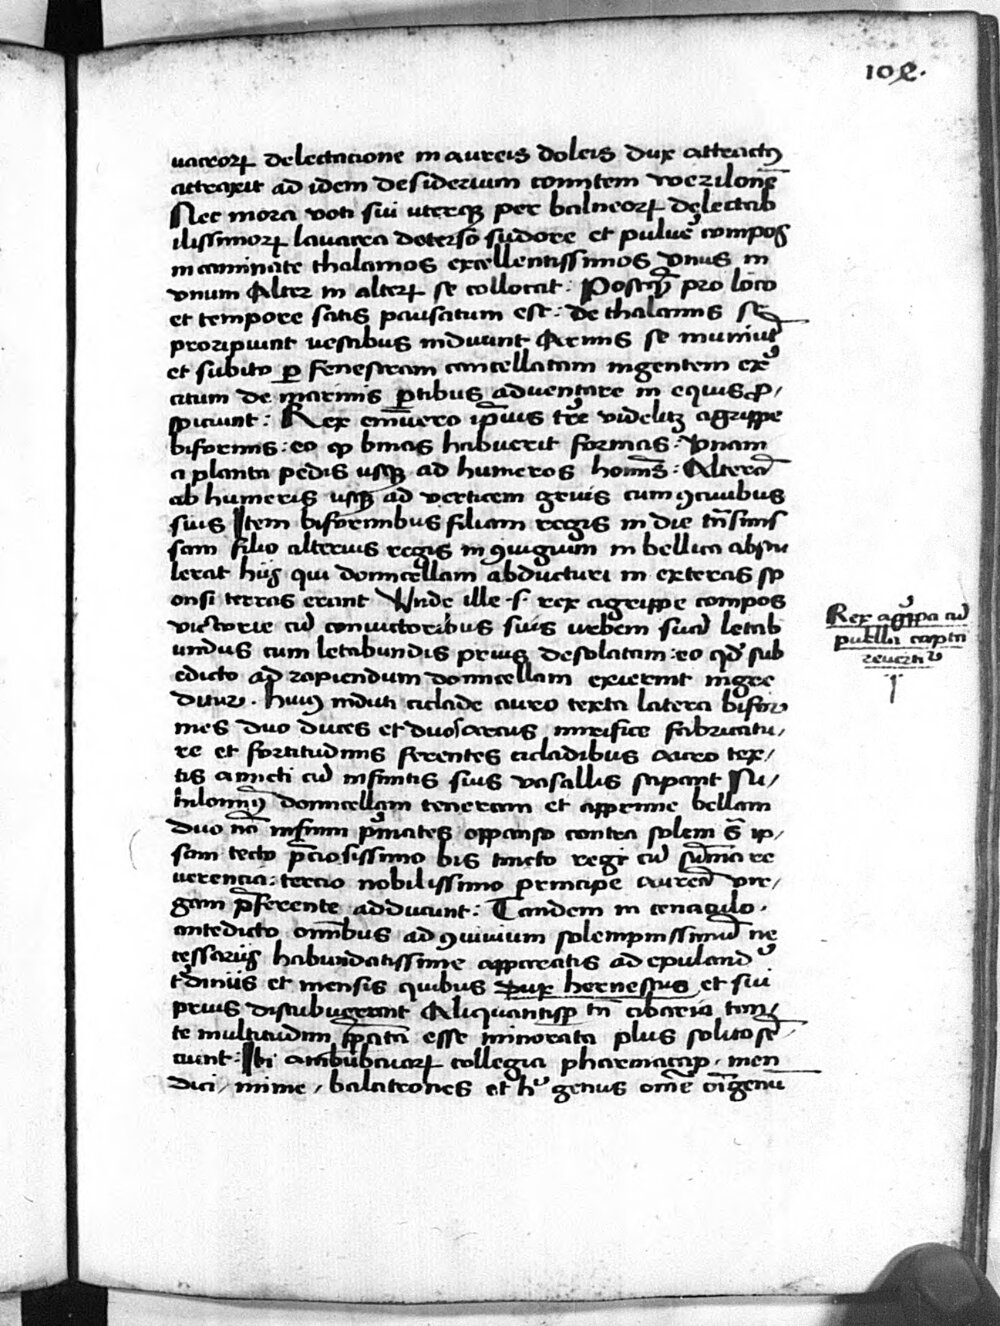 102.
uaceoꝝ delectacione in aureis doleis dux attractꝰ
attraxit ad idem desiderium comitem wezilonē
Nec mora voti sui uterqꝫ per balneoꝝ delectab
ilissimoꝝ lauacra deterso sudore et puluē compos
in caminate thalamos excellentissimos Vnus in
vnum Alter in alteꝝ se collocat: Postqͣ pro loco
et tempore satis pausatum est: de thalamis se
proripiunt vestibus induunt Armis se muniūt
et subito ꝑ fenestram cancellatam ingentem exꝰ
citum de marinis ꝑtibus aduentare in equis ꝓ/
spiciunt: Rex eniuero ipiꝰ tre videlitꝫ agrippe
biformis: eo ꝙ binas habuerit formas: Vnam
a planta pedis usqꝫ ad humeros hominis: Alterā
ab humeris usqꝫ ad verticem gruis cum ꝯuiuibus
suis Item biformibus filiam regis in die
sam filio alterius regis in ꝯiugium in bellica abstu
lerat hijs qui domicellam abducturi in exteras sp
onsi terras erant Unde ille .s. rex agrippe compos
victorie cū conuictoribus suis urbem suā letab
undus cum letabundis prius desolatam: eo qd̄ sub
edicto ad rapiendum domicellam exierint ingre
ditur. huiꝰ induti ciclade auro texta latera bifor
mes duo duces et duo arcus mirifice fabricatu/
re et fortitudinis ferentes cicladibus auro tex/
tis amicti cū infinitis suis vasallis stipant Ni/
hilominꝰ domicellam teneram et apprime bellam
duo nō infimi pͥmates oppanso contra solem sr̄ ip/
sam tecto p̄ciosissimo bis tincto regi cū sūma re
uerencia: tercio nobilissimo principe aureā vir/
gam p̄ferente adducunt: Tandem in cenaculo.
antedicto omībus ad ꝯuiuium solempnissimū ne
cessarijs habundatissime apparatis ad epulandꝰ
et mensis quibus dux hernestus et sui
prius discubuerant Aliquantisp tn̄ cibaria tan/
te multitudini p̄parata esse minorata plus solito se
ciunt: Ibi ambubaiaꝝ collegia pharmacap. men
dici/ mime/ balatrones et hͦ genus omē
Rex agͥppa cū
puella capta
reuertiꝉ